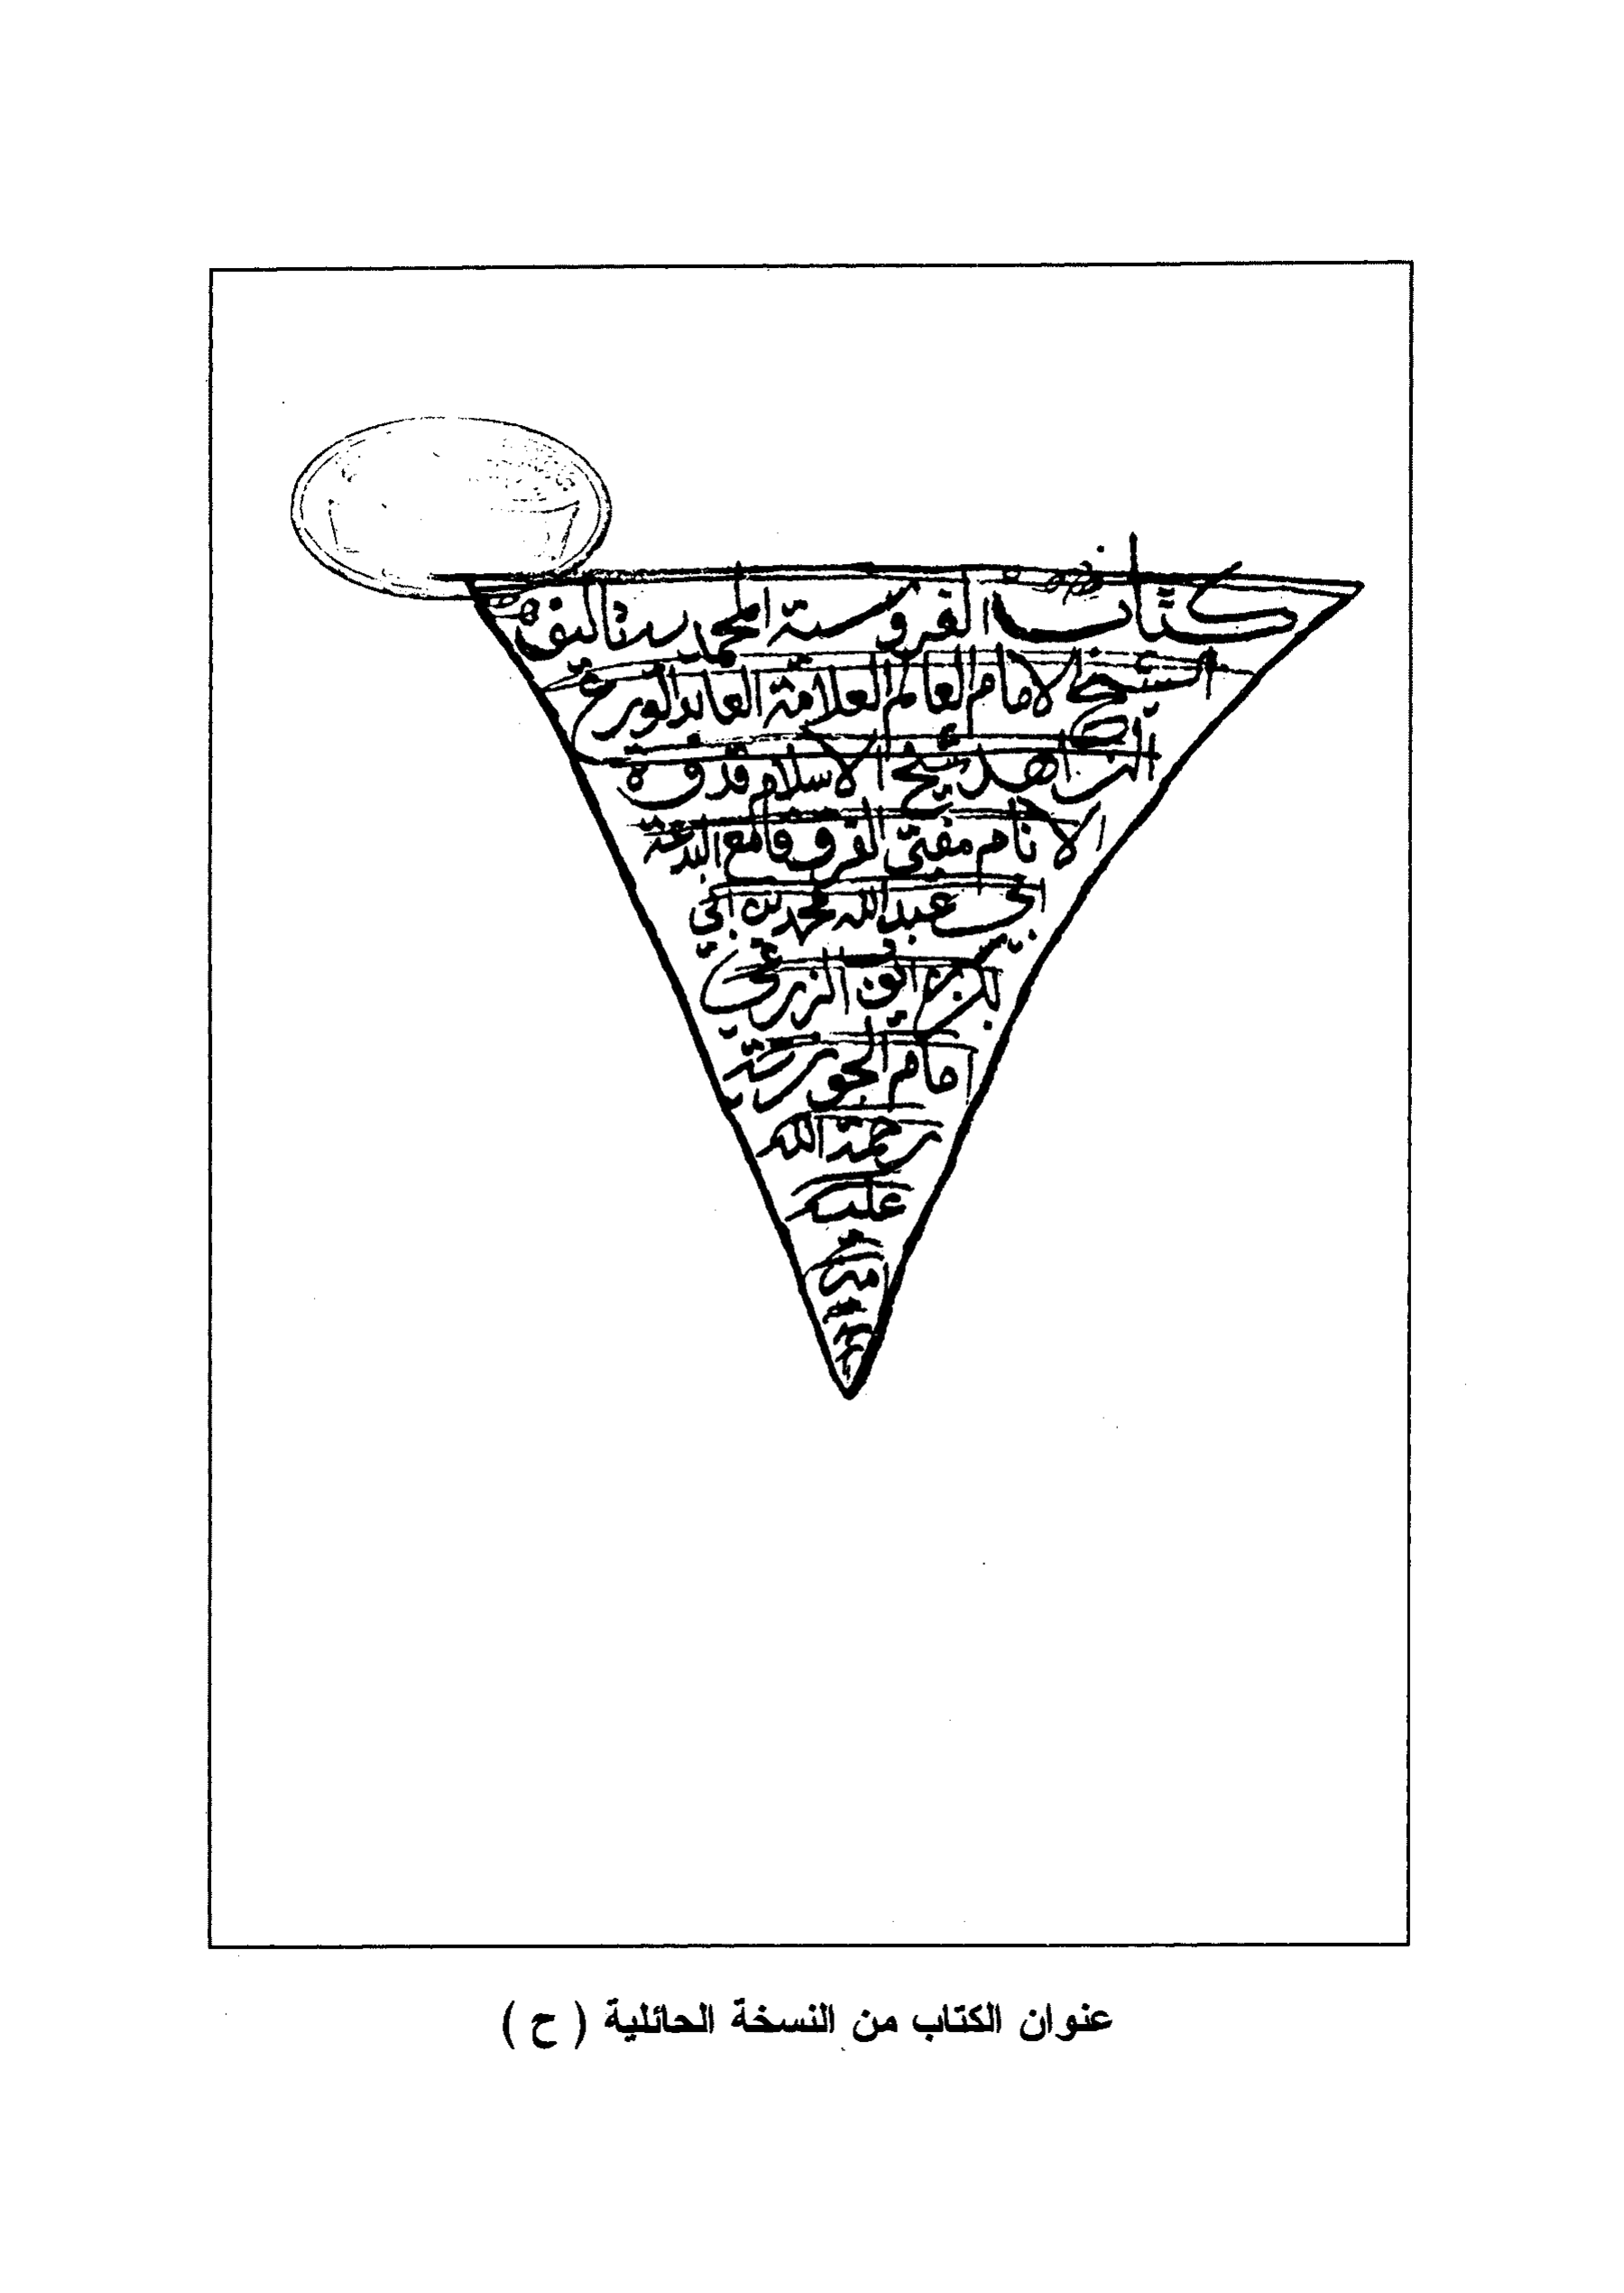 كتاب الفروسية المحمدية تاليف
الشيخ الامام العالم العلامة العابد الورع
الزاهد شيخ الاسلام قدوة
الانام مفتي الفرق قامع البدعة
ابي عبد الله محمد بن ابي
بكر بن ايوب الزرعي
امام الجوزية
رحمة الله
عليه
عنوان الكتاب من النسخة الحائلية ( ح )